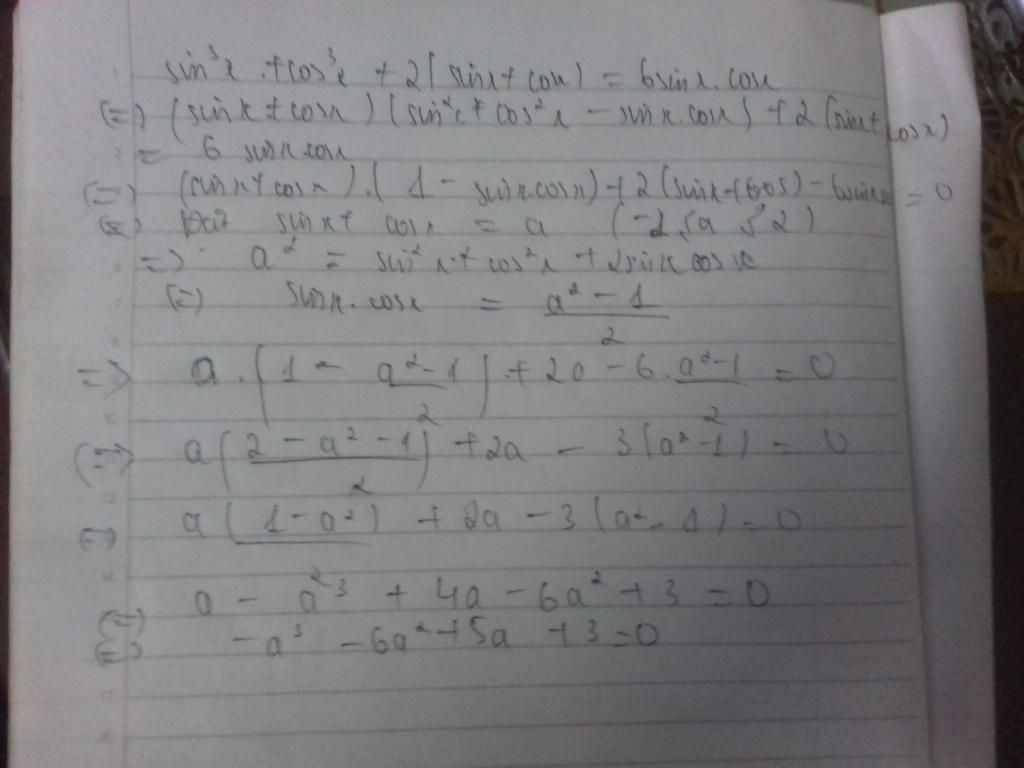 sin³x + cos³x + 2(sinx + cosx) = 6sinx.cosx
(=) (sinx + cosx)(sin²x + cos²x - sinx.cosx) + 2(sinx + cosx)
= 6 sinx cosx
(=) (sinx + cosx).(1 - sinx.cosx) + 2(sinx + cos) - 6sinx = 0
Đặt sinx + cosx = a (-2 ≤ a ≤ 2)
=> a² = sin²x + cos²x + 2sinx cosx
(=) sinx.cosx = (a² - 1)/2
=> a.(1 - (a² - 1)/2) + 2a - 6.(a² - 1)/2 = 0
(=) a((2 - a² - 1)/2) + 2a - 3(a² - 1) = 0
(=) a(1 - a²) + 2a - 3(a² - 1) = 0
(=) a - a³ + 4a - 6a² + 3 = 0
(=) -a³ - 6a² + 5a + 3 = 0